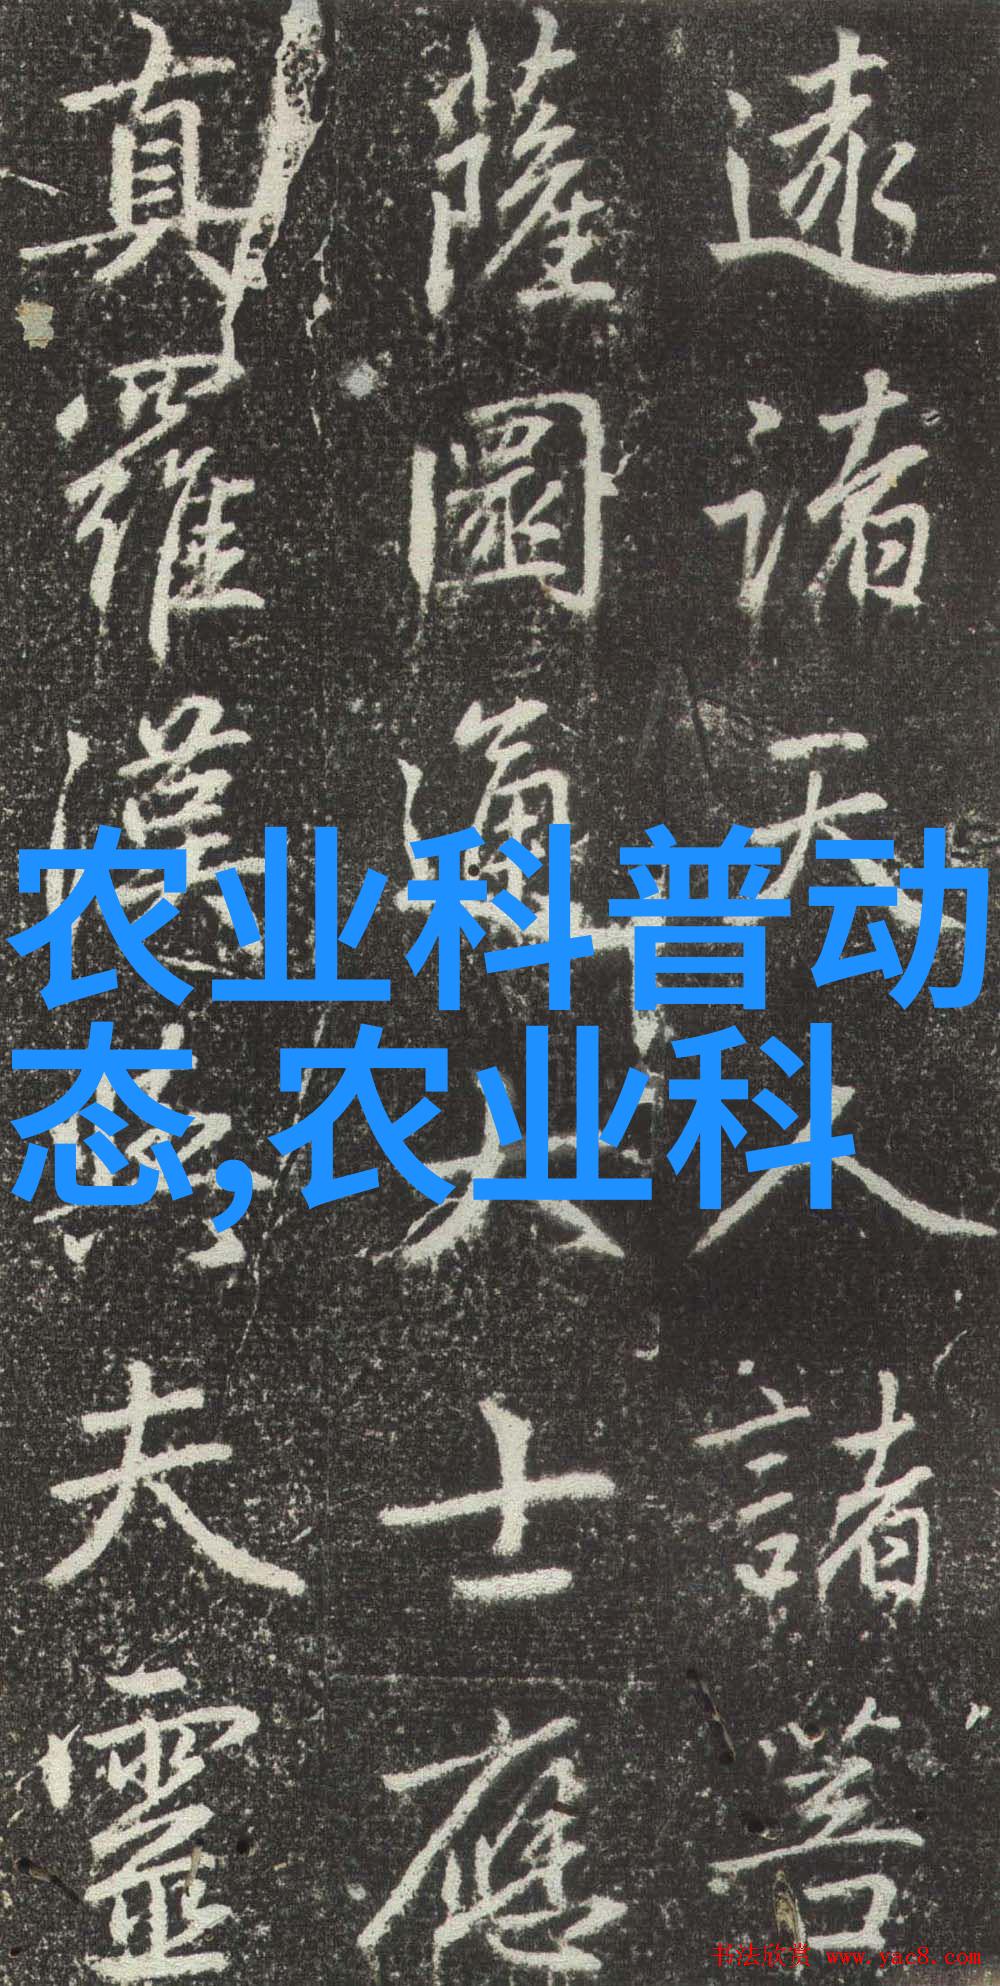 逮諸天人諸菩
薩圓通大士應
真羅漢夫靈
农业科普动
态,农业科
书法欣赏 www.yac8.com